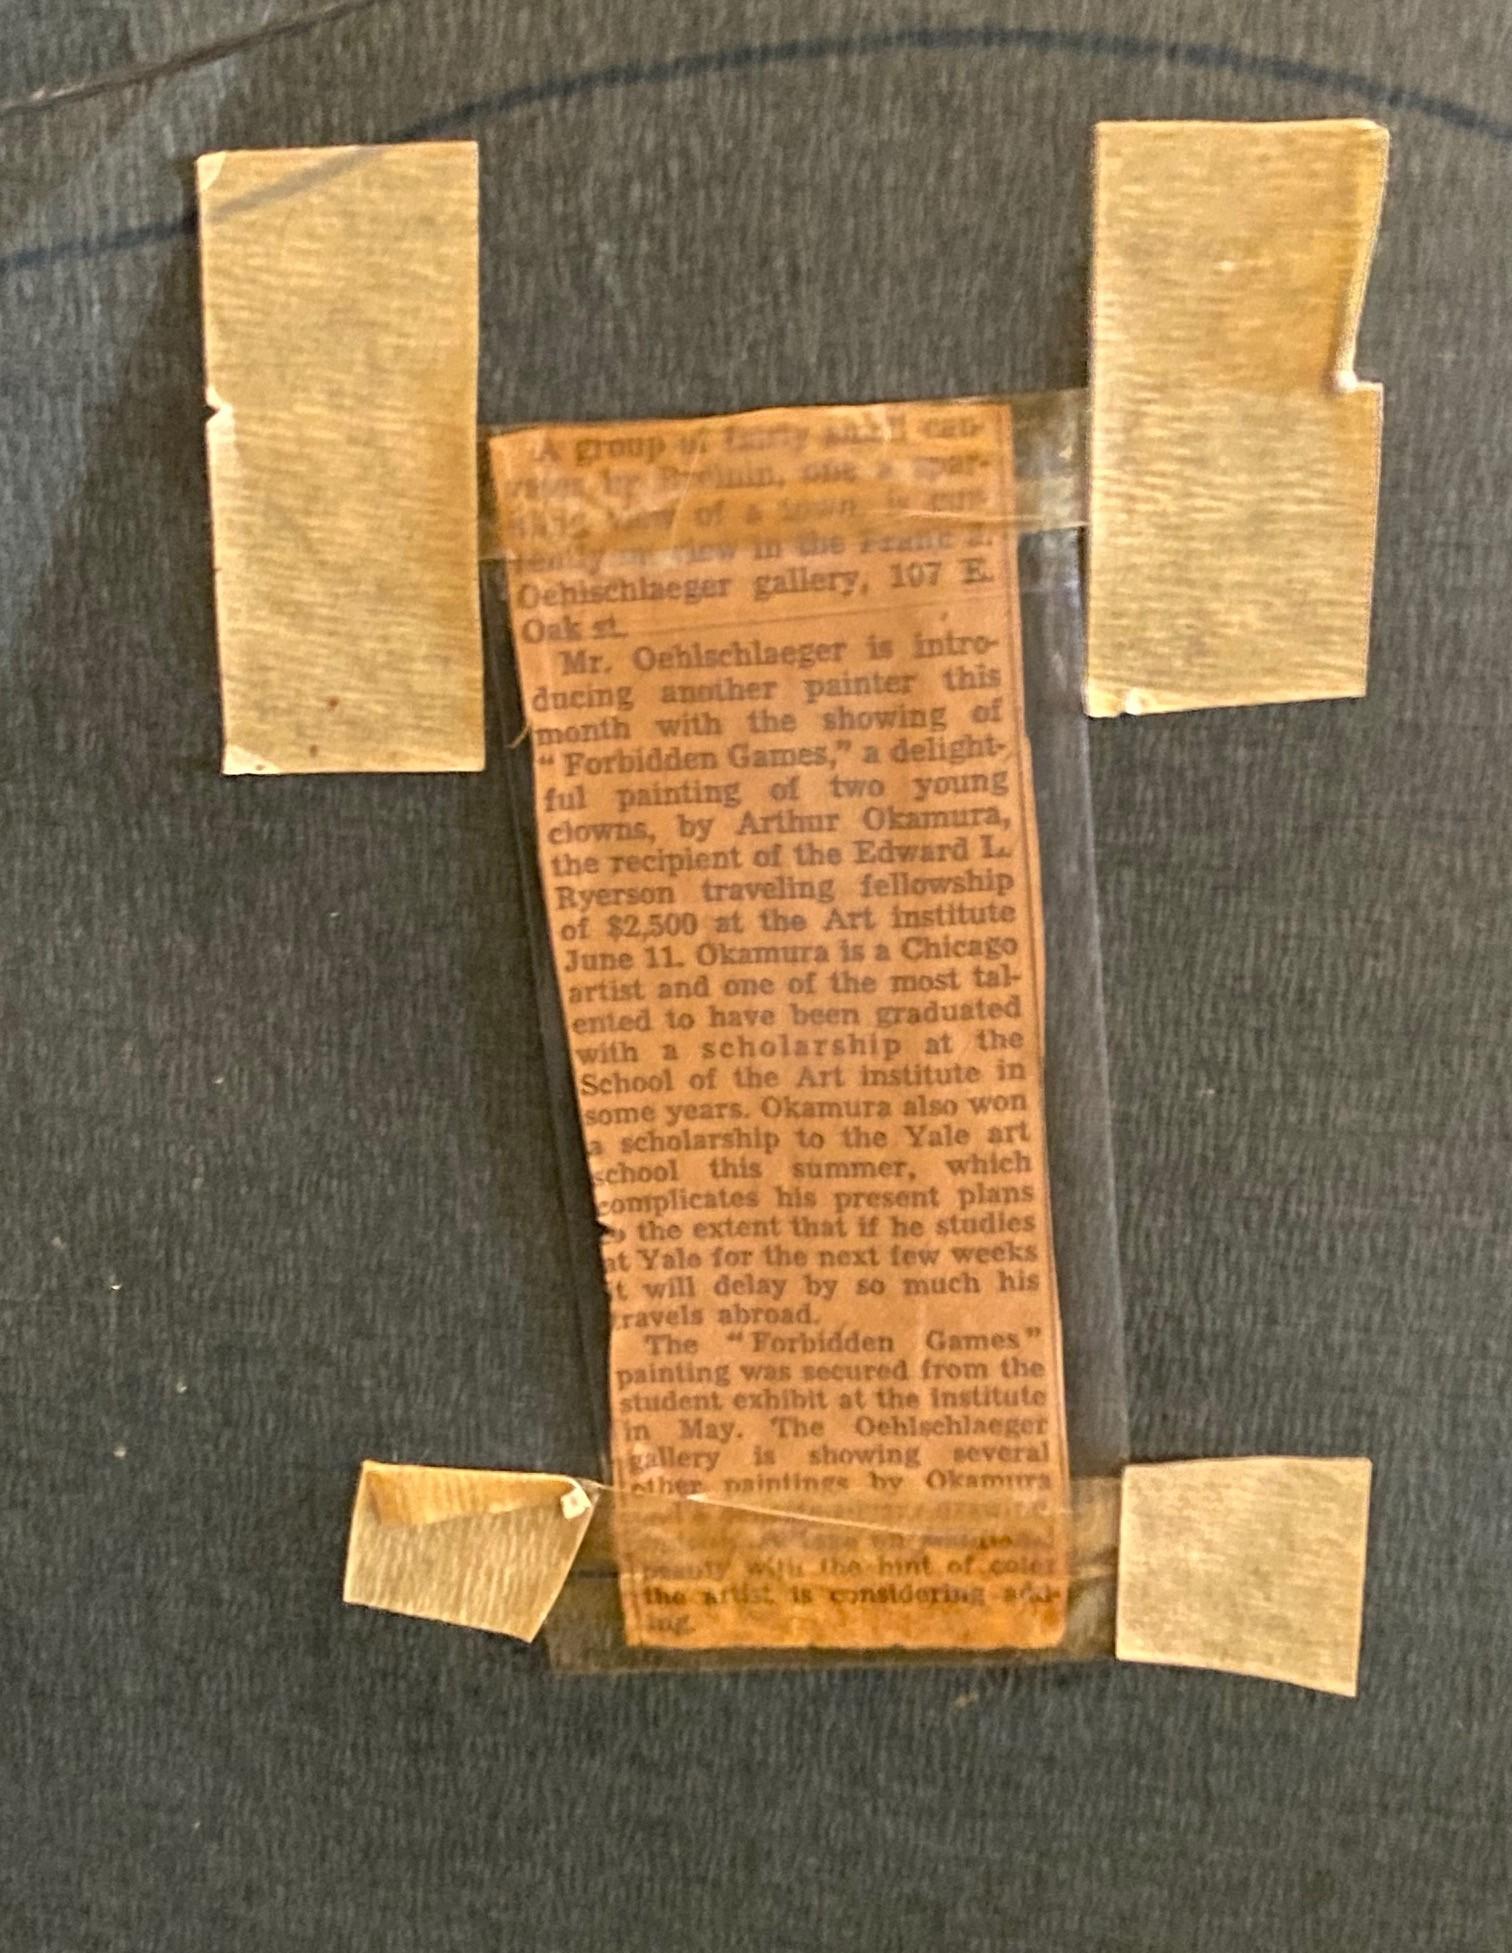 A group of fairly small can-
by Breinin, one a spar-
view of a town is cur-
rently on view in the Frank J.
Oehlschlaeger gallery, 107 E.
Oak st.
Mr. Oehlschlaeger is intro-
ducing another painter this
month with the showing of
“Forbidden Games,” a delight-
ful painting of two young
clowns, by Arthur Okamura,
the recipient of the Edward L.
Ryerson traveling fellowship
of $2,500 at the Art institute
June 11. Okamura is a Chicago
artist and one of the most tal-
ented to have been graduated
with a scholarship at the
School of the Art institute in
some years. Okamura also won
a scholarship to the Yale art
school this summer, which
complicates his present plans
the extent that if he studies
at Yale for the next few weeks
t will delay by so much his
ravels abroad.
The “Forbidden Games”
painting was secured from the
student exhibit at the institute
in May. The Oehlschlaeger
gallery is showing several
other paintings by Okamura
with the hint of color
the artist is considering add-
ing.